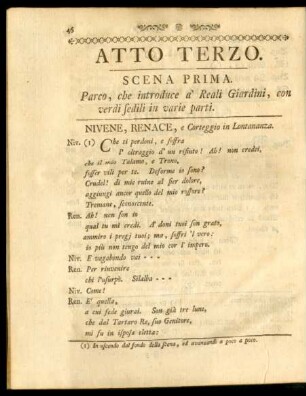 46
ATTO TERZO.
SCENA PRIMA.
Parco, che introduce a' Reali Giardini, con
verdi sedili in varie parti.
NIVENE, RENACE, e Corteggio in Lontananza.
Niv. (1) Che ti perdoni, e soffra
l' oltraggio d' un rifiuto! Ah! non credei,
che il mio Talamo, e Trono,
fosser vili per te. Deforme io sono?
Crudel! di mie ruine al fier dolore,
aggiungi ancor quello del mio rossore?
Tremane, sconoscente.
Ren. Ah! non son io
qual tu mi credi. A' doni tuoi son grato,
ammiro i pregj tuoi; ma, soffri 'l vero:
io più non tengo del mio cor l' impero.
Niv. E vagabondo vai - - -
Ren. Per rinvenire
chi l'usurpò. Silalba - - -
Niv. Come!
Ren. E' quella,
a cui fede giurai. Son già tre lune,
che dal Tartaro Re, suo Genitore,
mi fu in isposa eletta:
(1) In uscendo dal fondo della Scena, ed avanzando a poco a poco.